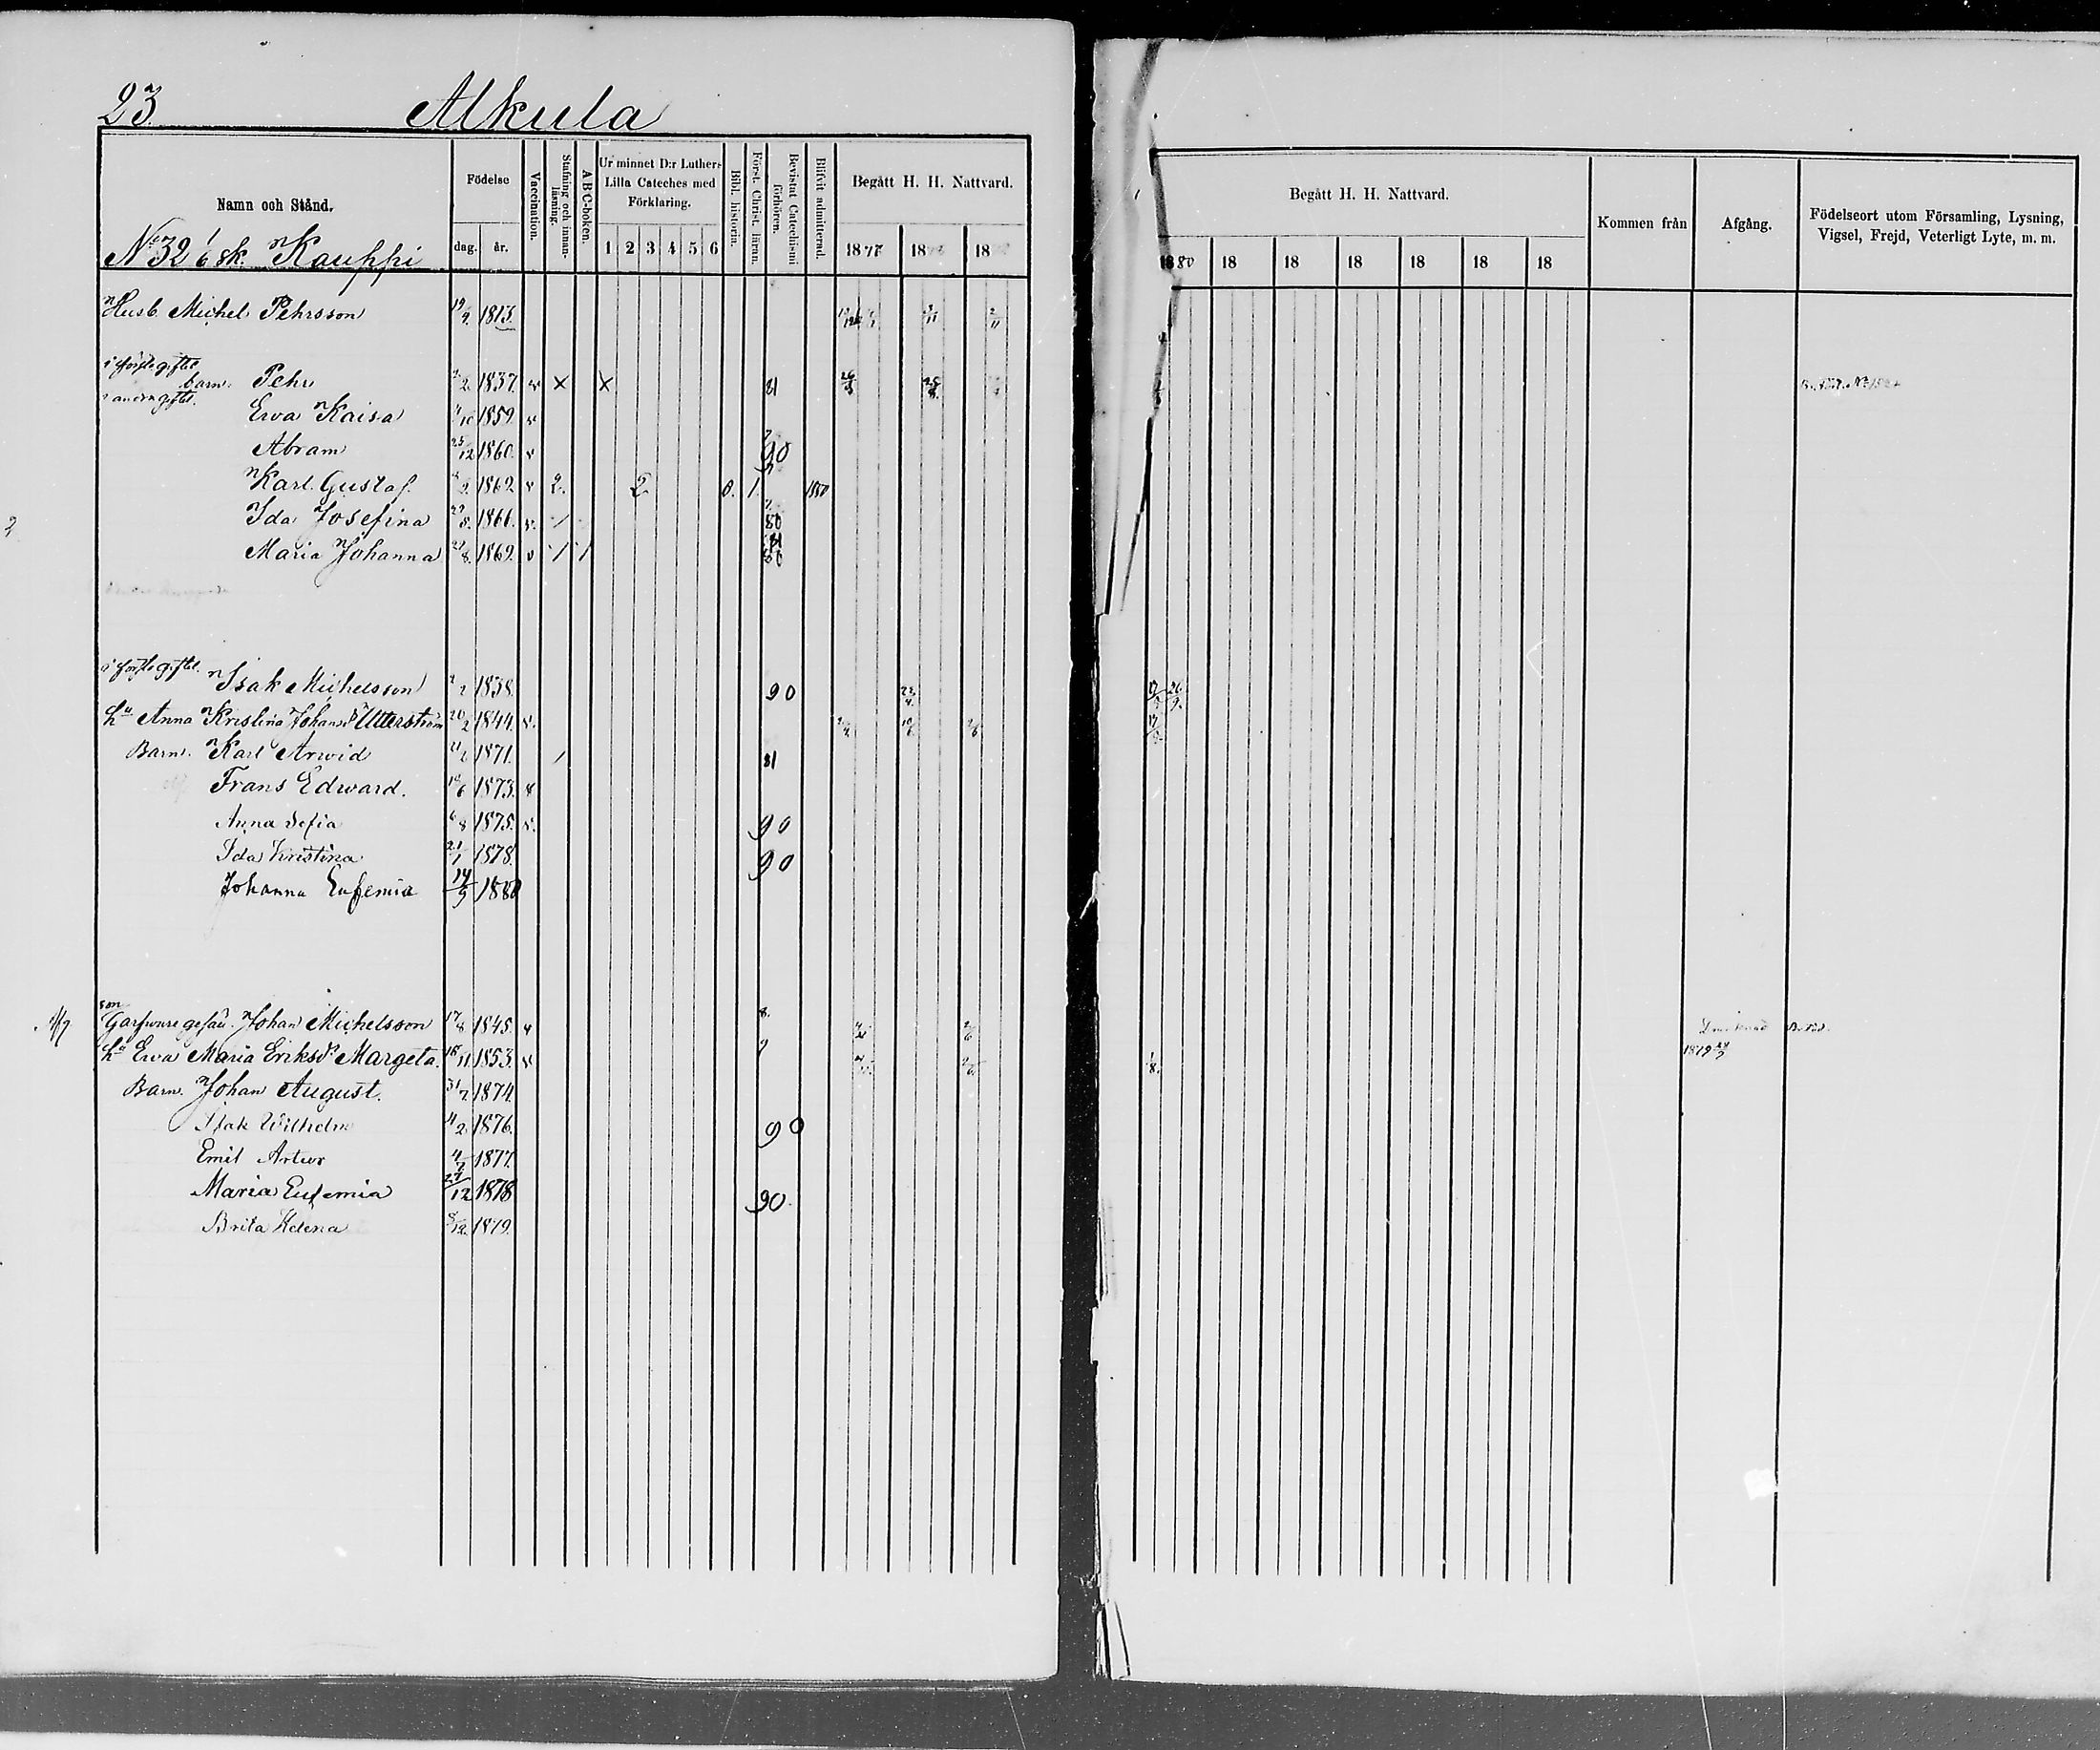 23. Alkula
Namn och Stånd. Födelse Vaccination. Stafning och innanläsning. A B C-boken. Ur minnet D:r Luthers Lilla Cateches med Förklaring. Bibl. historia. Först. Christ. läran. Bevistat Catechismi förhören. Blifvit admitterad. Begått H. H. Nattvard.
Begått H. H. Nattvard. Kommen från Afgång. Födelseort utom Församling, Lysning, Vigsel, Frejd, Veterligt Lyte, m. m.
dag. år. 1 2 3 4 5 6 1877 18 18
1880 18 18 18 18 18 18
No 32 1/6 sk. Kauppi
Husb Michel Pehrsson 19/9. 1813. 2/11 2/11
i första giftet
barn. Pehr 2/2 1837. v × × 81
i andra giftet.
Ewa Kaisa 4/10 1859. v
Abram 25/12 1860. v 90
Karl. Gustaf. 1862 v 2. 2 0. 1. 1880
Ida Josefina 29/8. 1866. v. / 80
2
Maria Johanna 21/8. 1869. v / / 81 80
i första giftet. Isak Michelsson 2/2 1838. 90 22/4.
hu Anna Kristina Johansdr Utterström 20/2 1844. v. 10/6
Barn. Karl Arwid 21/2 1871. / 81
Frans Edward. 18/6 1873. v
Anna Sofia 6/8 1875. v. 90
Ida Kristina 21/1 1878. 90
Johanna Eufemia 14/9 1880
son
Garfware gesäll. Johan Michelsson 17/8 1845. v 8. 2/6
hu Ewa Maria Eriksdr Margeta. 18/11. 1853. v 7 1/8. 1879
Barn. Johan August. 31/7 1874.
Isak Wilhelm 4/2 1876. 90
Emil Artur 4/7 1877.
Maria Eufemia 27/12 1878 90.
Brita Helena 5/12. 1879.